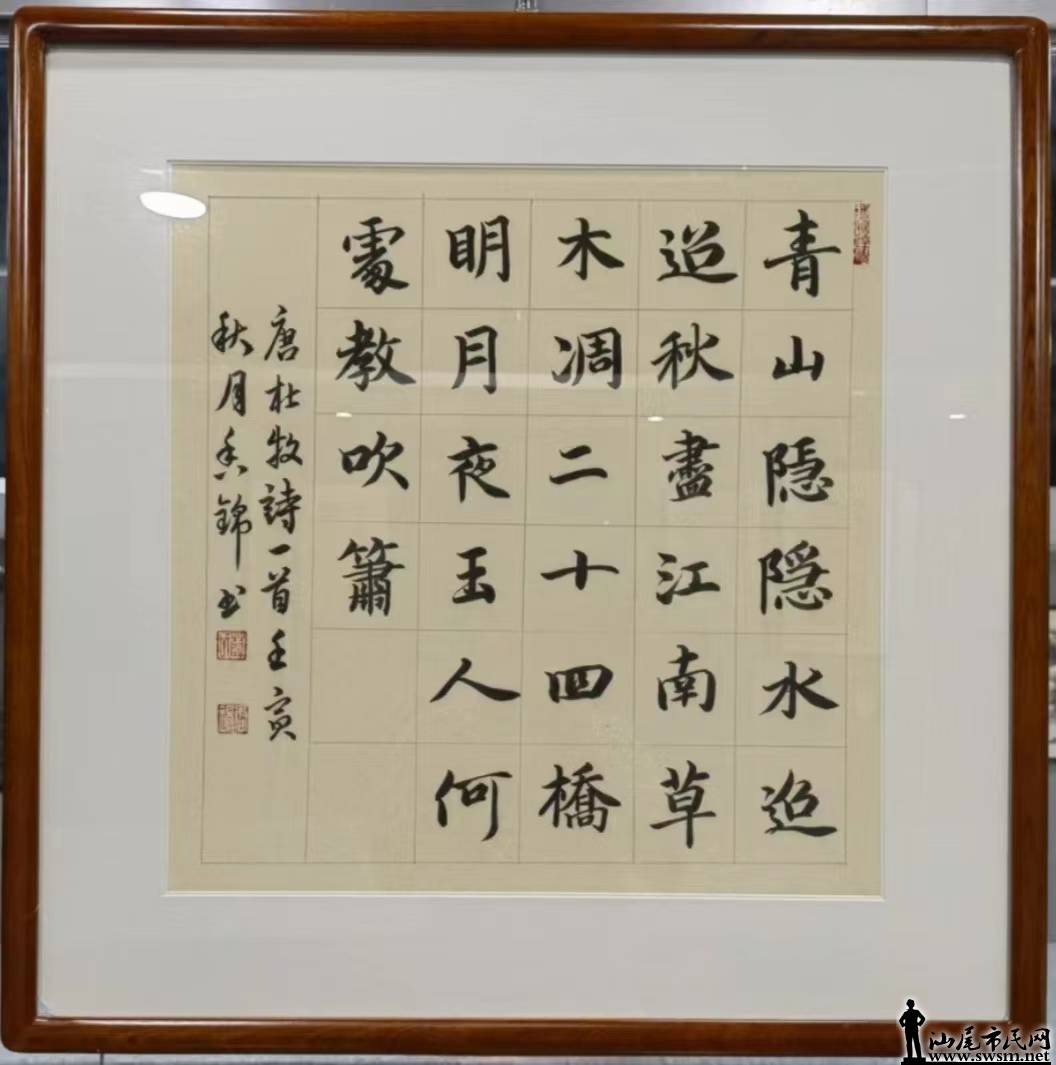 青山隐隐水迢
迢秋盡江南草
木凋二十四橋
明月夜玉人何
處教吹簫
唐杜牧詩一首壬寅
秋月錦书
汕尾市民网
www.swsm.net